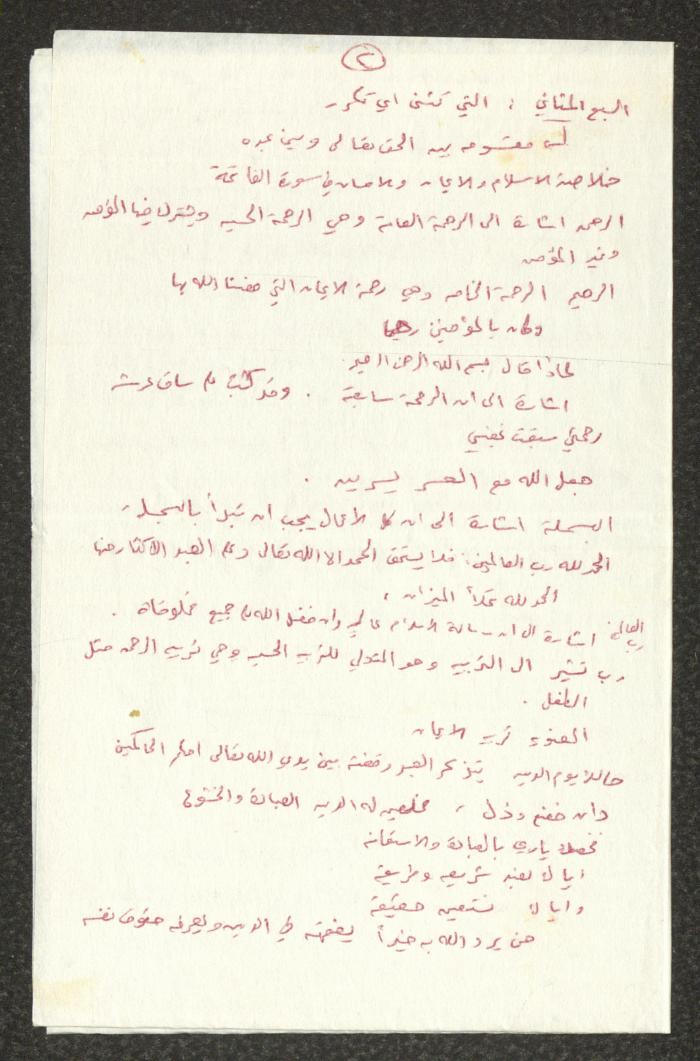 ٢
السبع المثاني : التي تثنى اي تكرر
مقسومة بين الحق تعالى وبين عبده
خلاصة الاسلام والايمان والاحسان في سورة الفاتحة
الرحمن اشارة الى الرحمة العامة وهي الرحمة الحسيه ويشترك فيها المؤمن
وغير المؤمن
الرحيم الرحمة الخاصه وهي رحمة الايمان التي خصنا الله بها
وكان بالمؤمنين رحيما
لماذا قال بسم الله الرحمن الرحيم
اشارة الى ان الرحمة سابقة . وقد كتب على ساق عرشه
رحمتي سبقت غضبي
جعل الله مع العسر يسرين .
البسملة اشارة الى ان كل الأعمال يجب ان تبدأ بالبسملة
الحمد لله رب العالمين : فلا يستحق الحمد الا الله تعالى وعلى العبد الاكثار منها
الحمد لله تملأ الميزان ،
رب العالمين اشارة الى ان رسالة الاسلام عالمية وان فضل الله على جميع مخلوقاته .
رب تشير الى التربيه وهو المتولي للتربيه الحسيه وهي تربيه الرحمن مثل
الطفل .
المعنويه تربيه الايمان
مالك يوم الدين يتذكر العبد وقفته بين يدي الله تعالى احكم الحاكمين
وان خضع وذل ، مخلصين له الدين العبادة والخشوع
فخصك ياربي بالعبادة والاستعانه
اياك نعبد شريعه وطريقه
واياك نستعين حقيقة
من يرد الله به خيراً يفقهه في الدين ويعرفه حقوق نفسه